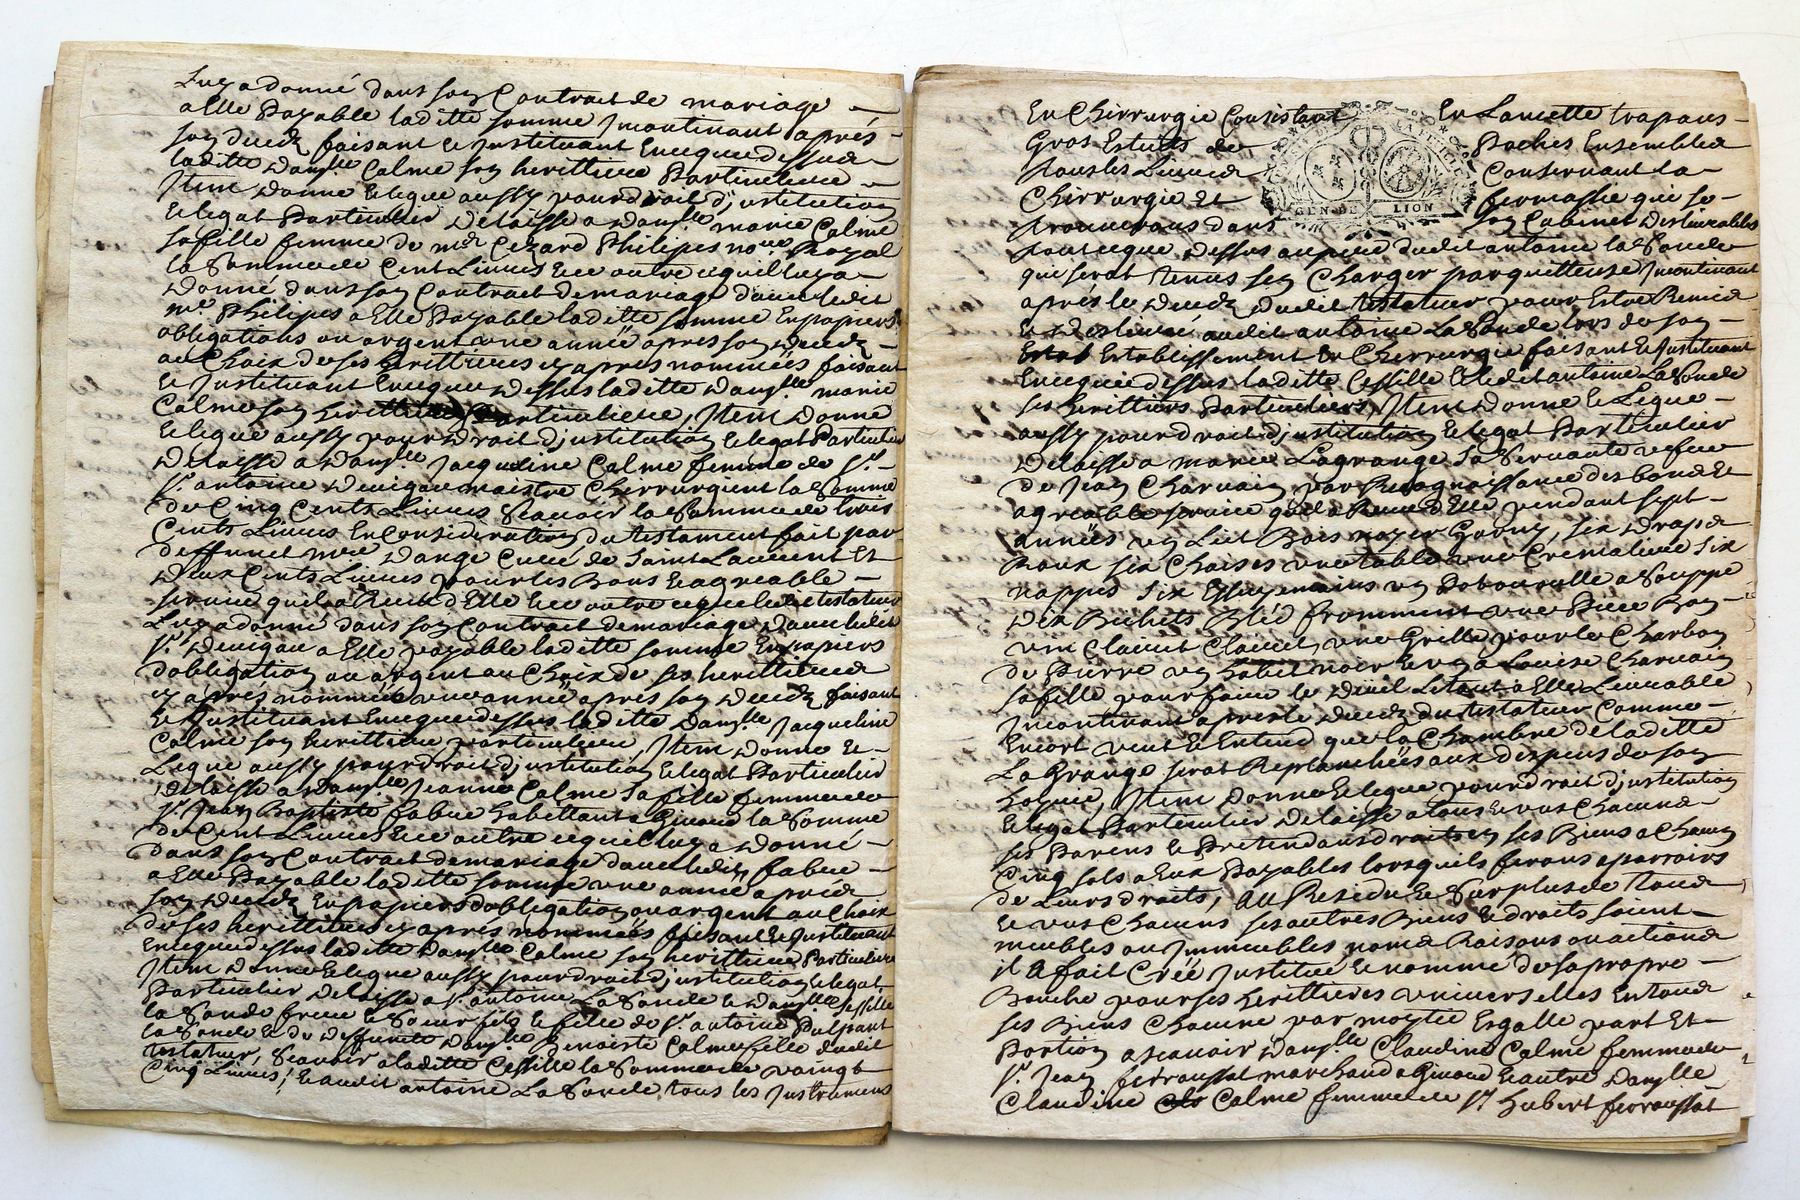 Luy a donné dans son Contrait de mariage
a Elle Payable laditte somme Jncontinant aprés
son deceds faisant et Jnstituant Encequedessus
laditte Damlle Calme son herittiere Particuliere
Jtem Donne et legue aussy pour droit d'jnstitution
et legat Particulier delaisse a Damlle marie Calme
sa fille femme de mre Cezard Philipes Royal
la Somme de Cent Livres et ce outre ce quil luy a
Donné dans son Contrait de mariage d'avec ledit
mre Philipes a Elle Payable laditte somme En papiers
obligations ou argent une anneé apres son deceds
au Choix de ses herittieres cy apres nommeés faisant
et Jnstituant Enceque dessus laditte Damlle marie
Calme son herittiere Particuliere, Jtem Donne
et legue aussy pour droit d'jnstitution et legat Particulier
Delaisse a Damlle Jacqueline Calme femme de Sr
Sr antoine maistre Chirrurgient la Somme
de Cinq Cents Livres Scavoir la Somme de trois
Cents Livres En consideration du testament fait par
deffunct mre Dange Curé de Saint Laurent Et
Deux Cents Livres pour les Bons et agreable
service quil a Recut d'Elle et ce outre ce que ledit testateur
Luy a donné dans son Contrait de mariage d'avec ledit
Sr a Elle payable laditte somme En papiers
d'obligation ou argent au Choix de ses herittieres
cy aprés nommeés une anneé apres son deceds faisant
et Jnstituant Encequedessus laditte Damlle Jacqueline
Calme son herittiere particuliere, Jtem Donne et
Legue aussy pour droit d'jnstitution et legat Particulier
Delaisse a Damlle Jeanne Calme sa fille femme de
Sr Jean Baptiste fabre habittant a Givord la Somme
de Cent Livres et ce outre ce quil luy a Donné
dans son Contrait de mariage d'avec ledit fabre
a Elle Payable laditte somme une anneé aprés
son deceds En papiers d'obligation ou argent au Choix
de ses herittieres cy aprés nommeés faisant et Jnstituant
Encequedessus laditte Damlle Calme son herittiere Particuliere
Jtem Donne et legue aussy pour droit d'jnstitution et legat
Particulier Delaisse a Sr antoine La Sonde et Damlle Cessille
la Sonde frere et Soeur fils et fille de Sr antoine
la Sonde et de deffuncte Damlle Benoiste Calme fille dudit
testateur, Scavoir a laditte Cessille la Somme de vaingt
Cinq Livres, et audit antoine La Sonde tous les Jnstrumens
En Chirrurgie Consistant En Lancette trapans
Gros Estuits de Poches Ensembles
tous les Livres Consernant la
Chirrurgie Et fermassie qui se
trouverons dans son Cabinet
tout ceque dessus au pere dudit antoine la Sonde
qui serat tenus sen Charger par quittence Jncontinant
aprés le deceds dudit testateur pour Estre Remis
et delivré audit antoine La Sonde lors de son
Establissement En Chirrurgie faisant et Jnstituant
Encequedessus laditte Cessille et ledit antoine La Sonde
ses herittiers Particuliers, Jtem Donne et Legue
aussy pour droit d'jnstitution et legat Particulier
Delaisse a marie Lagrange sa Servante vefve
de Jean Charvain par Recognoissance des bons et
agreable service quil a Receu d'Elle pendant sept
anneés un Liet Bois noyer Garny, six draps
six Chaises une table une Cremaliere six
nappes six Essuyemains un a Souppe
dix Bichets Bled fromment une Piece Bon
vin Clairet une Grille pour le Charbon
de Pierre un habit noir et un a Louise Charvain
sa fille pour faire le Düeil Le tout a Elle Livrable
Jncontinant apres le deceds du testateur Comme
Encort veut et Entend que la Chambre de laditte
La Grange serat aux despens de son
hoyrie, Jtem Donne et legue pour droit d'jnstitution
et legat Particulier Delaisse a tous et uns Chacuns
ses Parens et Pretendans droits en ses Biens a Chacun
Cinq sols a Eux Payables lorsquils ferons aparroirs
de Leurs droits, Au Residu et Surplus de Tous
et uns Chacuns ses autres Biens et droits soient
meubles ou Jmmeubles noms Raisons ou actions
il A fait Creé Jnstitué et nommé de sa propre
Bouche pour ses herittieres universelles En tous
ses Biens Chacune par moytié Esgalle part Et
Portion a scavoir Damlle Claudine Calme femme de
Sr Jean ferroussat marchand a Givord et autre Damlle
Claudine Calme femme de Sr hubert ferroussat
GEN. DE LION